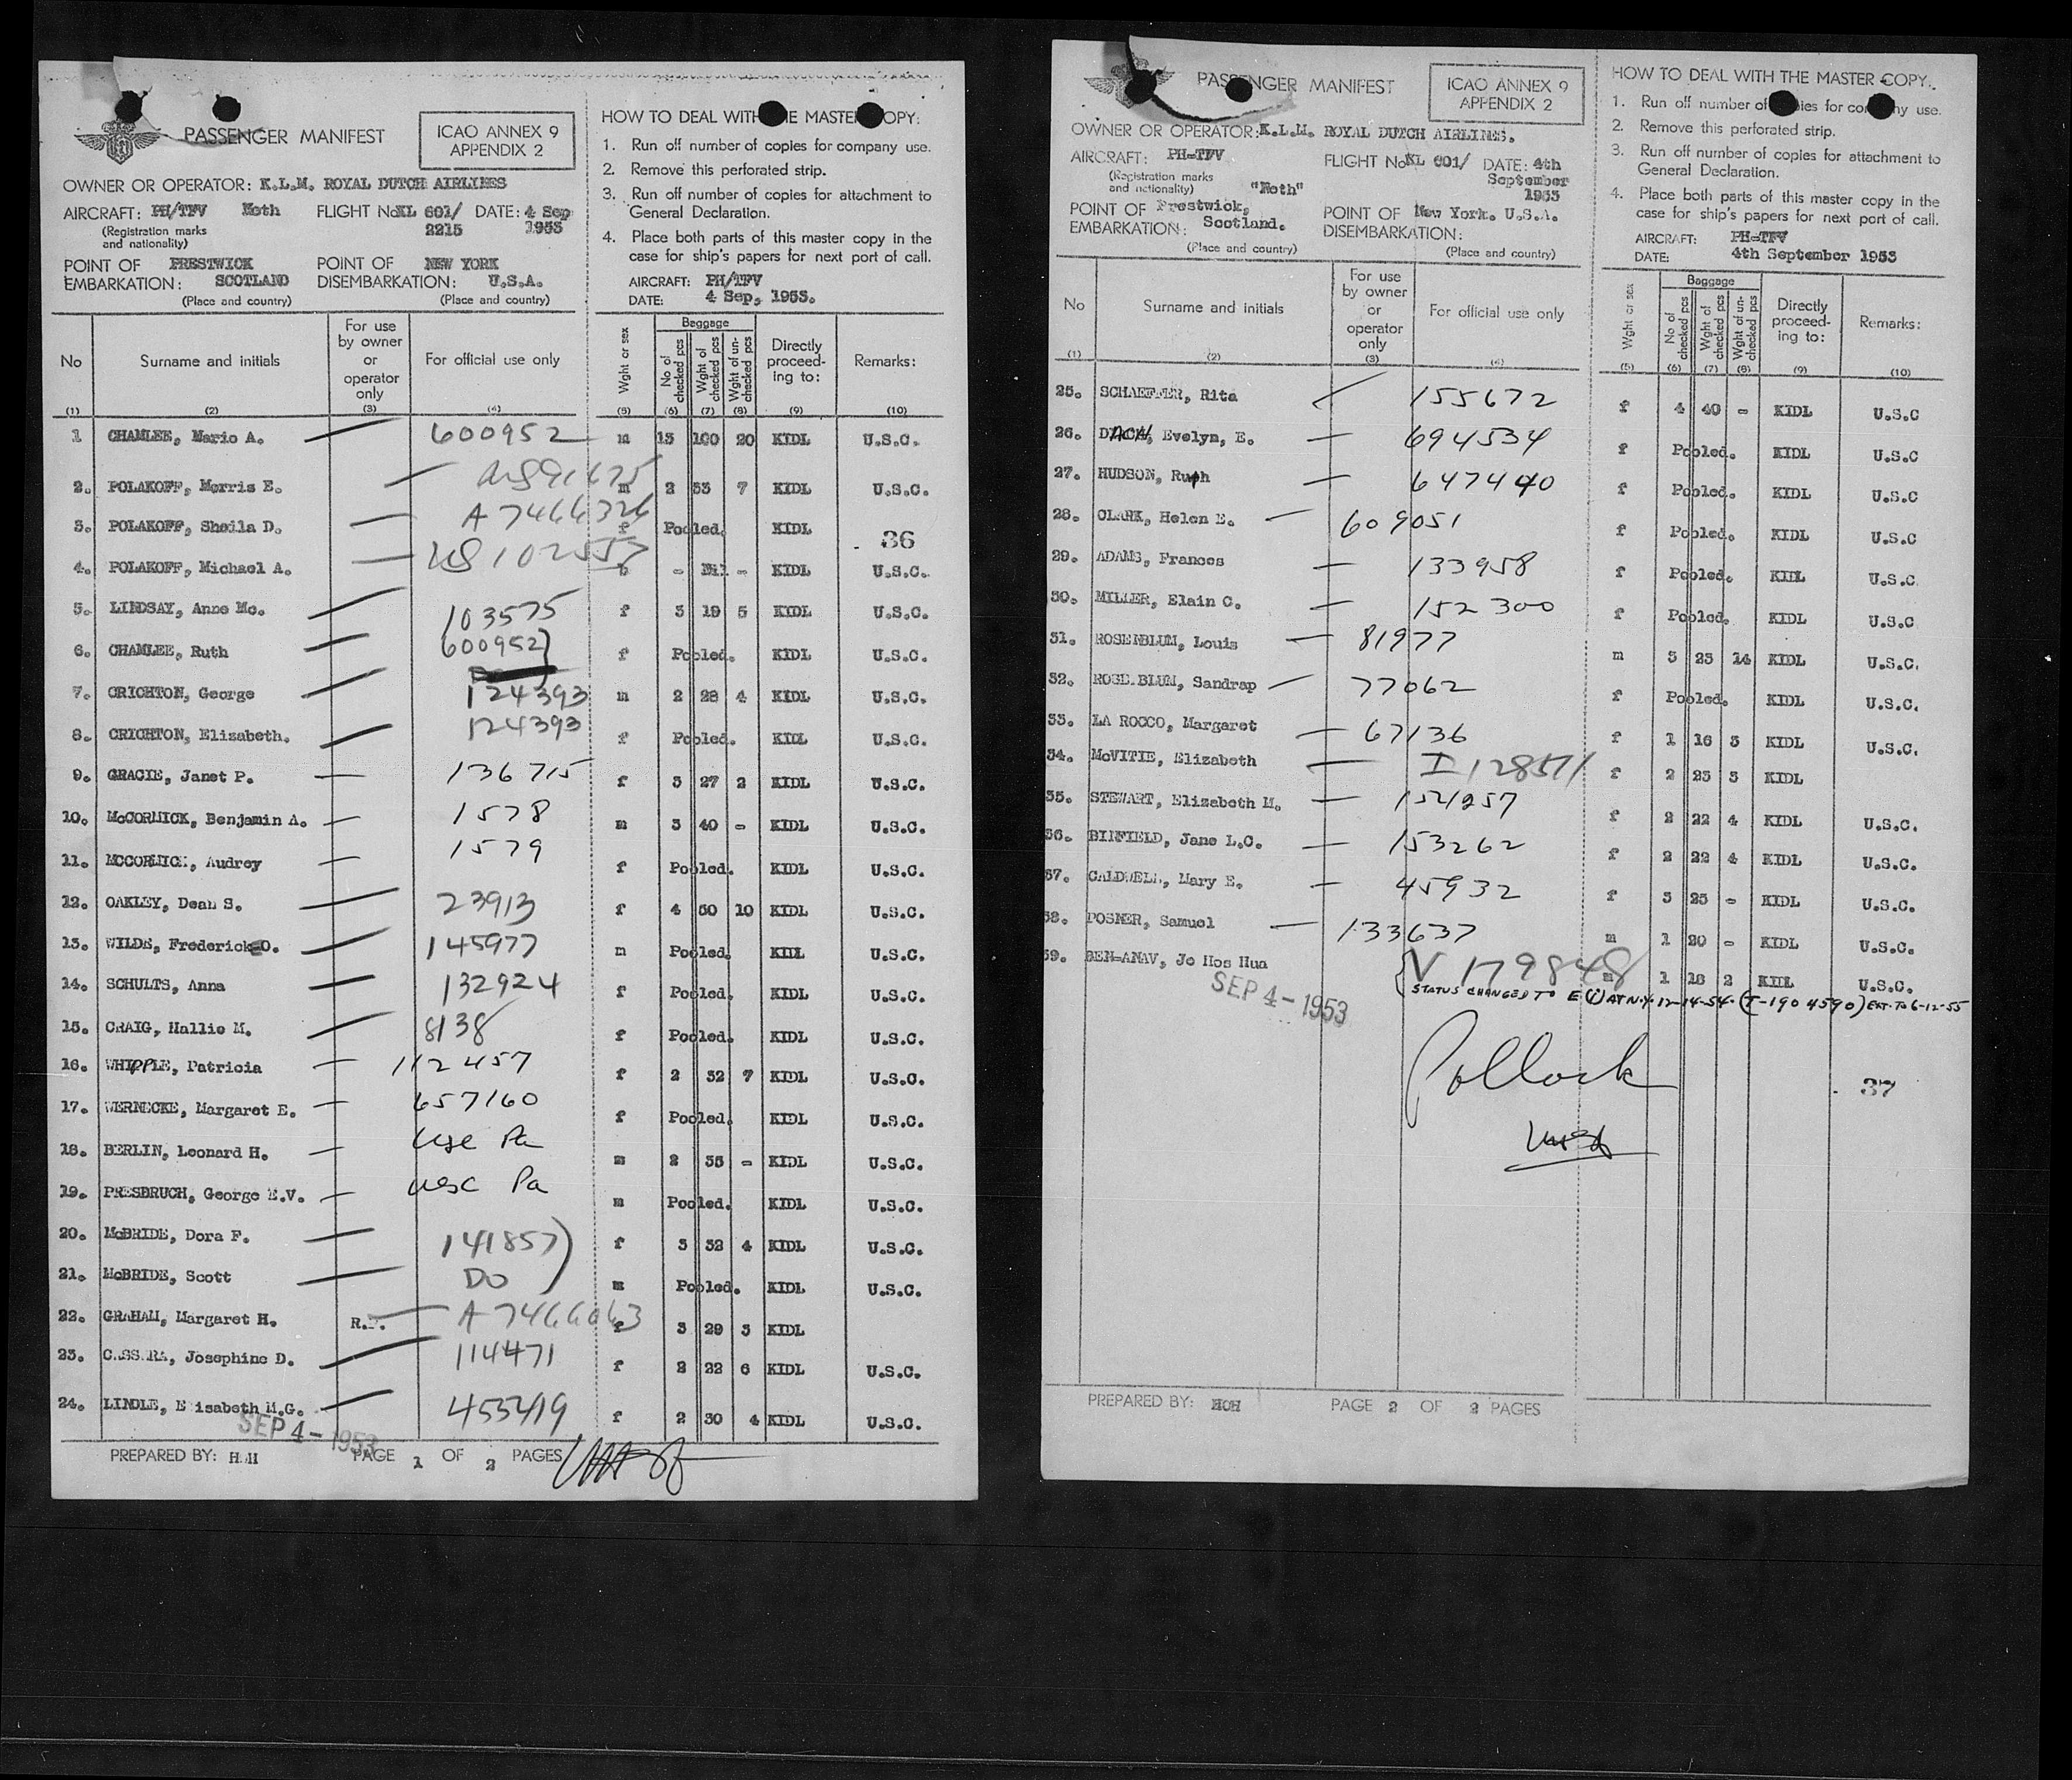 PASSENGER MANIFEST
ICAO ANNEX 9
APPENDIX 2
OWNER OR OPERATOR: K.L.M. ROYAL DUTCH AIRLINES
AIRCRAFT: PH/TFV Moth FLIGHT No KL 601/ DATE: 4 Sep
(Registration marks and nationality) 2215 1953
POINT OF EMBARKATION: PRESTWICK SCOTLAND POINT OF DISEMBARKATION: NEW YORK U.S.A.
(Place and country) (Place and country)
HOW TO DEAL WITH THE MASTER COPY:
1. Run off number of copies for company use.
2. Remove this perforated strip.
3. Run off number of copies for attachment to
General Declaration.
4. Place both parts of this master copy in the
case for ship's papers for next port of call.
AIRCRAFT: PH/TFV
DATE: 4 Sep, 1953.
No Surname and initials For use by owner or operator only For official use only Wght or sex Baggage No of checked pcs Wght of checked pcs Wght of un-checked pcs Directly proceed-ing to: Remarks:
(1) (2) (3) (4) (5) (6) (7) (8) (9) (10)
1 CHAMLEE, Mario A. — 600952 m 13 100 20 KIDL U.S.C.
2. POLAKOFF, Morris E. — m 2 33 7 KIDL U.S.C.
3. POLAKOFF, Sheila D. — A 7466326 f Pooled. KIDL
36
4. POLAKOFF, Michael A. — US 102557 b - Nil - KIDL U.S.C.
5. LINDSAY, Anne Mc. — 103575 f 3 19 5 KIDL U.S.C.
6. CHAMLEE, Ruth — 600952) f Pooled. KIDL U.S.C.
7. CRICHTON, George — 124393 m 2 28 4 KIDL U.S.C.
8. CRICHTON, Elizabeth. — 124393 f Pooled. KIDL U.S.C.
9. GRACIE, Janet P. — 136715 f 3 27 2 KIDL U.S.C.
10. McCORMICK, Benjamin A. — 1578 m 3 40 - KIDL U.S.C.
11. MCCORMICK, Audrey — 1579 f Pooled. KIDL U.S.C.
12. OAKLEY, Dean S. — 23913 f 4 50 10 KIDL U.S.C.
13. WILDE, Frederick O. — 145977 m Pooled. KIDL U.S.C.
14. SCHULTS, Anna — 132924 f Pooled. KIDL U.S.C.
15. CRAIG, Hallie M. — 8138 f Pooled. KIDL U.S.C.
16. WHIPPLE, Patricia — 112457 f 2 32 7 KIDL U.S.C.
17. WERNECKE, Margaret E. — 657160 f Pooled. KIDL U.S.C.
18. BERLIN, Leonard H. — usc Pa m 2 35 - KIDL U.S.C.
19. PRESBRUCH, George E.V. — usc Pa m Pooled. KIDL U.S.C.
20. McBRIDE, Dora F. — 141857) f 3 32 4 KIDL U.S.C.
21. McBRIDE, Scott — DO m Pooled. KIDL U.S.C.
22. GRAHAM, Margaret H. — A 7466063 f 3 29 3 KIDL
23. CASSARA, Josephine D. — 114471 f 2 22 6 KIDL U.S.C.
24. LINDLE, E isabeth M.G. — 453419 f 2 30 4 KIDL U.S.C.
SEP 4 - 1953
PREPARED BY: PAGE 1 OF 2 PAGES
PASSENGER MANIFEST
ICAO ANNEX 9
APPENDIX 2
OWNER OR OPERATOR: K.L.M. ROYAL DUTCH AIRLINES.
AIRCRAFT: PH-TFV "Moth" FLIGHT No KL 601/ DATE: 4th September 1953
(Registration marks and nationality)
POINT OF EMBARKATION: Prestwick, Scotland. POINT OF DISEMBARKATION: New York. U.S.A.
(Place and country) (Place and country)
HOW TO DEAL WITH THE MASTER COPY.
1. Run off number of copies for company use.
2. Remove this perforated strip.
3. Run off number of copies for attachment to
General Declaration.
4. Place both parts of this master copy in the
case for ship's papers for next port of call.
AIRCRAFT: PH-TFV
DATE: 4th September 1953
No Surname and initials For use by owner or operator only For official use only Wght or sex Baggage No of checked pcs Wght of checked pcs Wght of un-checked pcs Directly proceed-ing to: Remarks:
(1) (2) (3) (4) (5) (6) (7) (8) (9) (10)
25. SCHAEFFER, Rita 155672 f 4 40 - KIDL U.S.C
26. DACH, Evelyn, E. — 694534 f Pooled. KIDL U.S.C
27. HUDSON, Ruth — 647440 f Pooled. KIDL U.S.C
28. CLARK, Helen E. — 609051 f Pooled. KIDL U.S.C
29. ADAMS, Frances — 133958 f Pooled. KIDL U.S.C
30. MILLER, Elain C. — 152300 f Pooled. KIDL U.S.C
31. ROSENBLUM, Louis — 81977 m 3 23 14 KIDL U.S.C.
32. ROSENBLUM, Sandrap — 77062 f Pooled. KIDL U.S.C.
33. LA ROCCO, Margaret — 67136 f 1 16 3 KIDL U.S.C.
34. McVITIE, Elizabeth — I 128571 f 2 23 3 KIDL
35. STEWART, Elizabeth M. — 154257 f 2 22 4 KIDL U.S.C.
36. BINFIELD, Jane L.C. — 153262 f 2 22 4 KIDL U.S.C.
37. CALDWELL, Mary E. — 45932 f 3 25 - KIDL U.S.C.
38. POSNER, Samuel — 133637 m 1 20 - KIDL U.S.C.
39. BEN-ANAV, Je Hos Hua V 179848 m 1 18 2 KIDL U.S.C.
STATUS CHANGED TO E (i) AT N.Y. 12-14-54. (T-1904590) EXT. TO 6-12-55
SEP 4 - 1953
Pollock
37
PREPARED BY: HOH PAGE 2 OF 2 PAGES